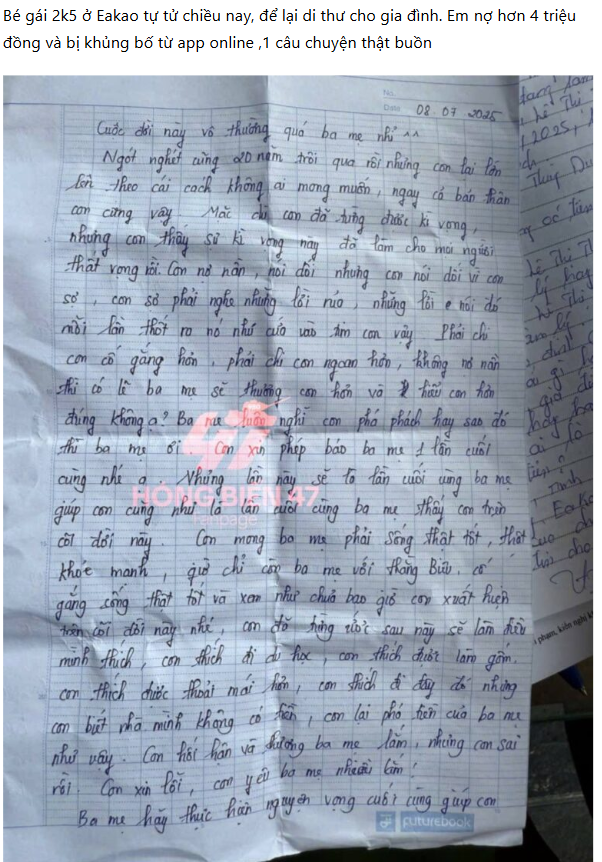 Bé gái 2k5 ở Eakao tự tử chiều nay, để lại di thư cho gia đình. Em nợ hơn 4 triệu
đồng và bị khủng bố từ app online ,1 câu chuyện thật buồn
No.
Date 08.07 2025
Cuộc đời này vô thường quá ba mẹ nhỉ ^^
Ngót nghét cũng 20 năm trôi qua rồi nhưng con lại lớn
lên theo cái cách không ai mong muốn, ngay cả bản thân
con cũng vậy. Mặc dù con đã từng được kì vọng,
nhưng con thấy sự kì vọng này đã làm cho mọi người
thất vọng rồi. Con nợ nần, nói dối nhưng con nói dối vì con
sợ, con sợ phải nghe những lời, những lời nói đó
mỗi lần thốt ra nó như cứa vào tim con vậy. Phải chi
con cố gắng hơn, phải chi con ngoan hơn, không nợ nần
thì có lẽ ba mẹ sẽ thương con hơn và hiểu con hơn
đúng không ạ? Ba mẹ luôn nghĩ con phá phách hay sao đó
thì ba mẹ ơi Con xin phép báo ba mẹ 1 lần cuối
cùng nhé ạ. Nhưng lần này sẽ là lần cuối cùng ba mẹ
giúp con cũng như là lần cuối cùng ba mẹ thấy con trên
cõi đời này. Con mong ba mẹ phải sống thật tốt, thật
khỏe mạnh, giờ chỉ còn ba mẹ với thằng, cố
gắng sống thật tốt và xem như chưa bao giờ con xuất hiện
trên cõi đời này nhé, con đã từng ước sau này sẽ làm điều
mình thích, con thích đi du học, con thích được làm gốm.
con thích được thoải mái hơn, con thích đi đây đó nhưng
con biết nhà mình không có tiền, con lại phá tiền của ba mẹ
như vậy. Con hối hận và thương ba mẹ lắm, nhưng con sai
rồi. Con xin lỗi, con yêu ba mẹ nhiều lắm!
Ba mẹ hãy thực hiện nguyện vọng cuối cùng giúp con
47
HÓNG BIẾN 47
Fanpage
futurebook